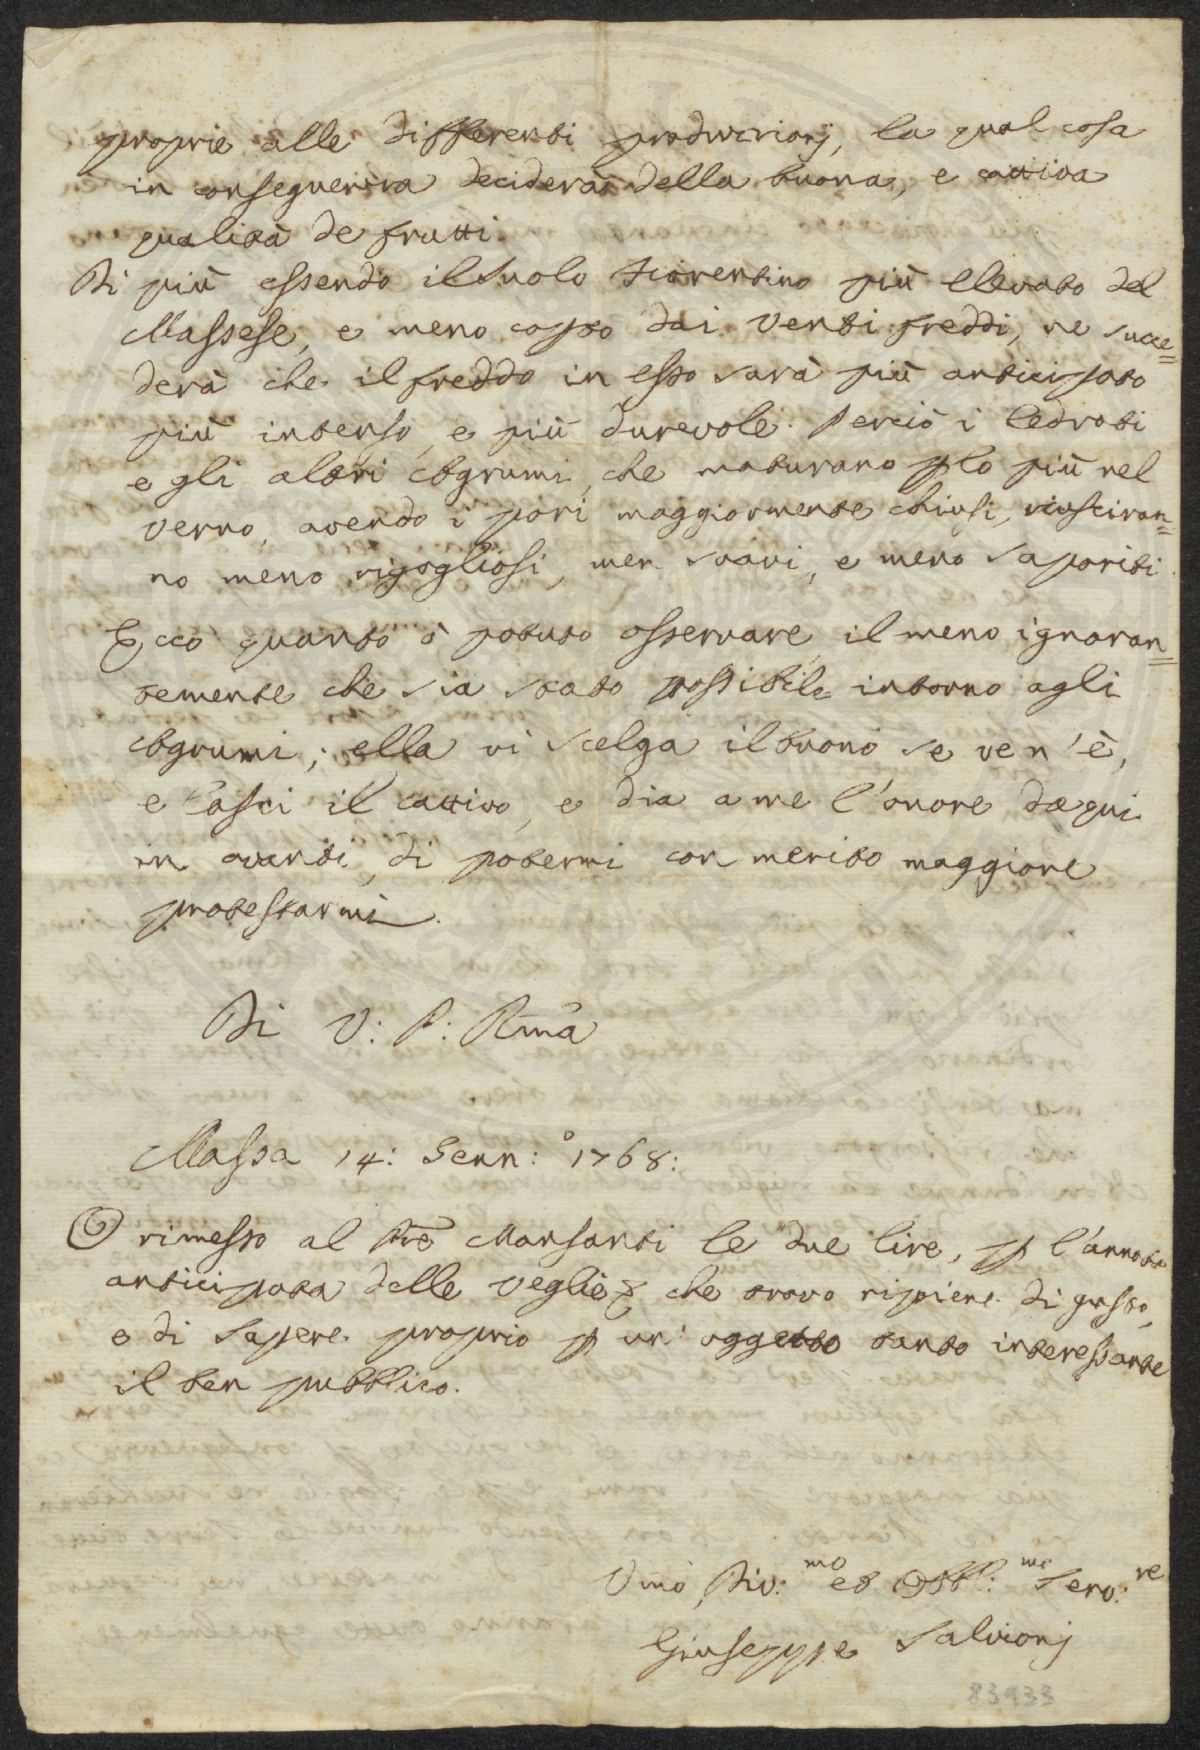 proprie alle differenti produzionj, la qual cosa
in conseguenza deciderà della buona, e cattiva
qualità de frutti.
Di più essendo il suolo fiorentino più elevato del
Massese, e meno copso dai venti freddi, ne succe=
derà che il freddo in esso sarà più anticipato
più intenso, e più durevole. Perciò i Cedrati
e gli altri Agrumi, che maturano p lo più nel
verno, avendo i pori maggiormente chiusi, riusciran=
no meno rigogliosi, men soavi, e meno saporiti
Ecco quanto ò potuto osservare il meno ignoran=
temente che sia stato possibile intorno agli
Agrumi; ella vi scelga il buono se ve n'è,
e lasci il cattivo, e dia a me l'onore da qui
in avanti, di potermi con merito maggiore
protestarmi.
Di V: P: Rma
Massa 14: Genn:o 1768:
O rimesso al Pre Mansanti le due lire, p l'annata
anticipata delle Veglie che trovo ripiene di gusto,
e di sapere proprio p un' oggetto tanto interessante
il ben pubblico.
Umo Div:mo et Obbl:mo Serv:re
Giuseppe Salvionj
83933